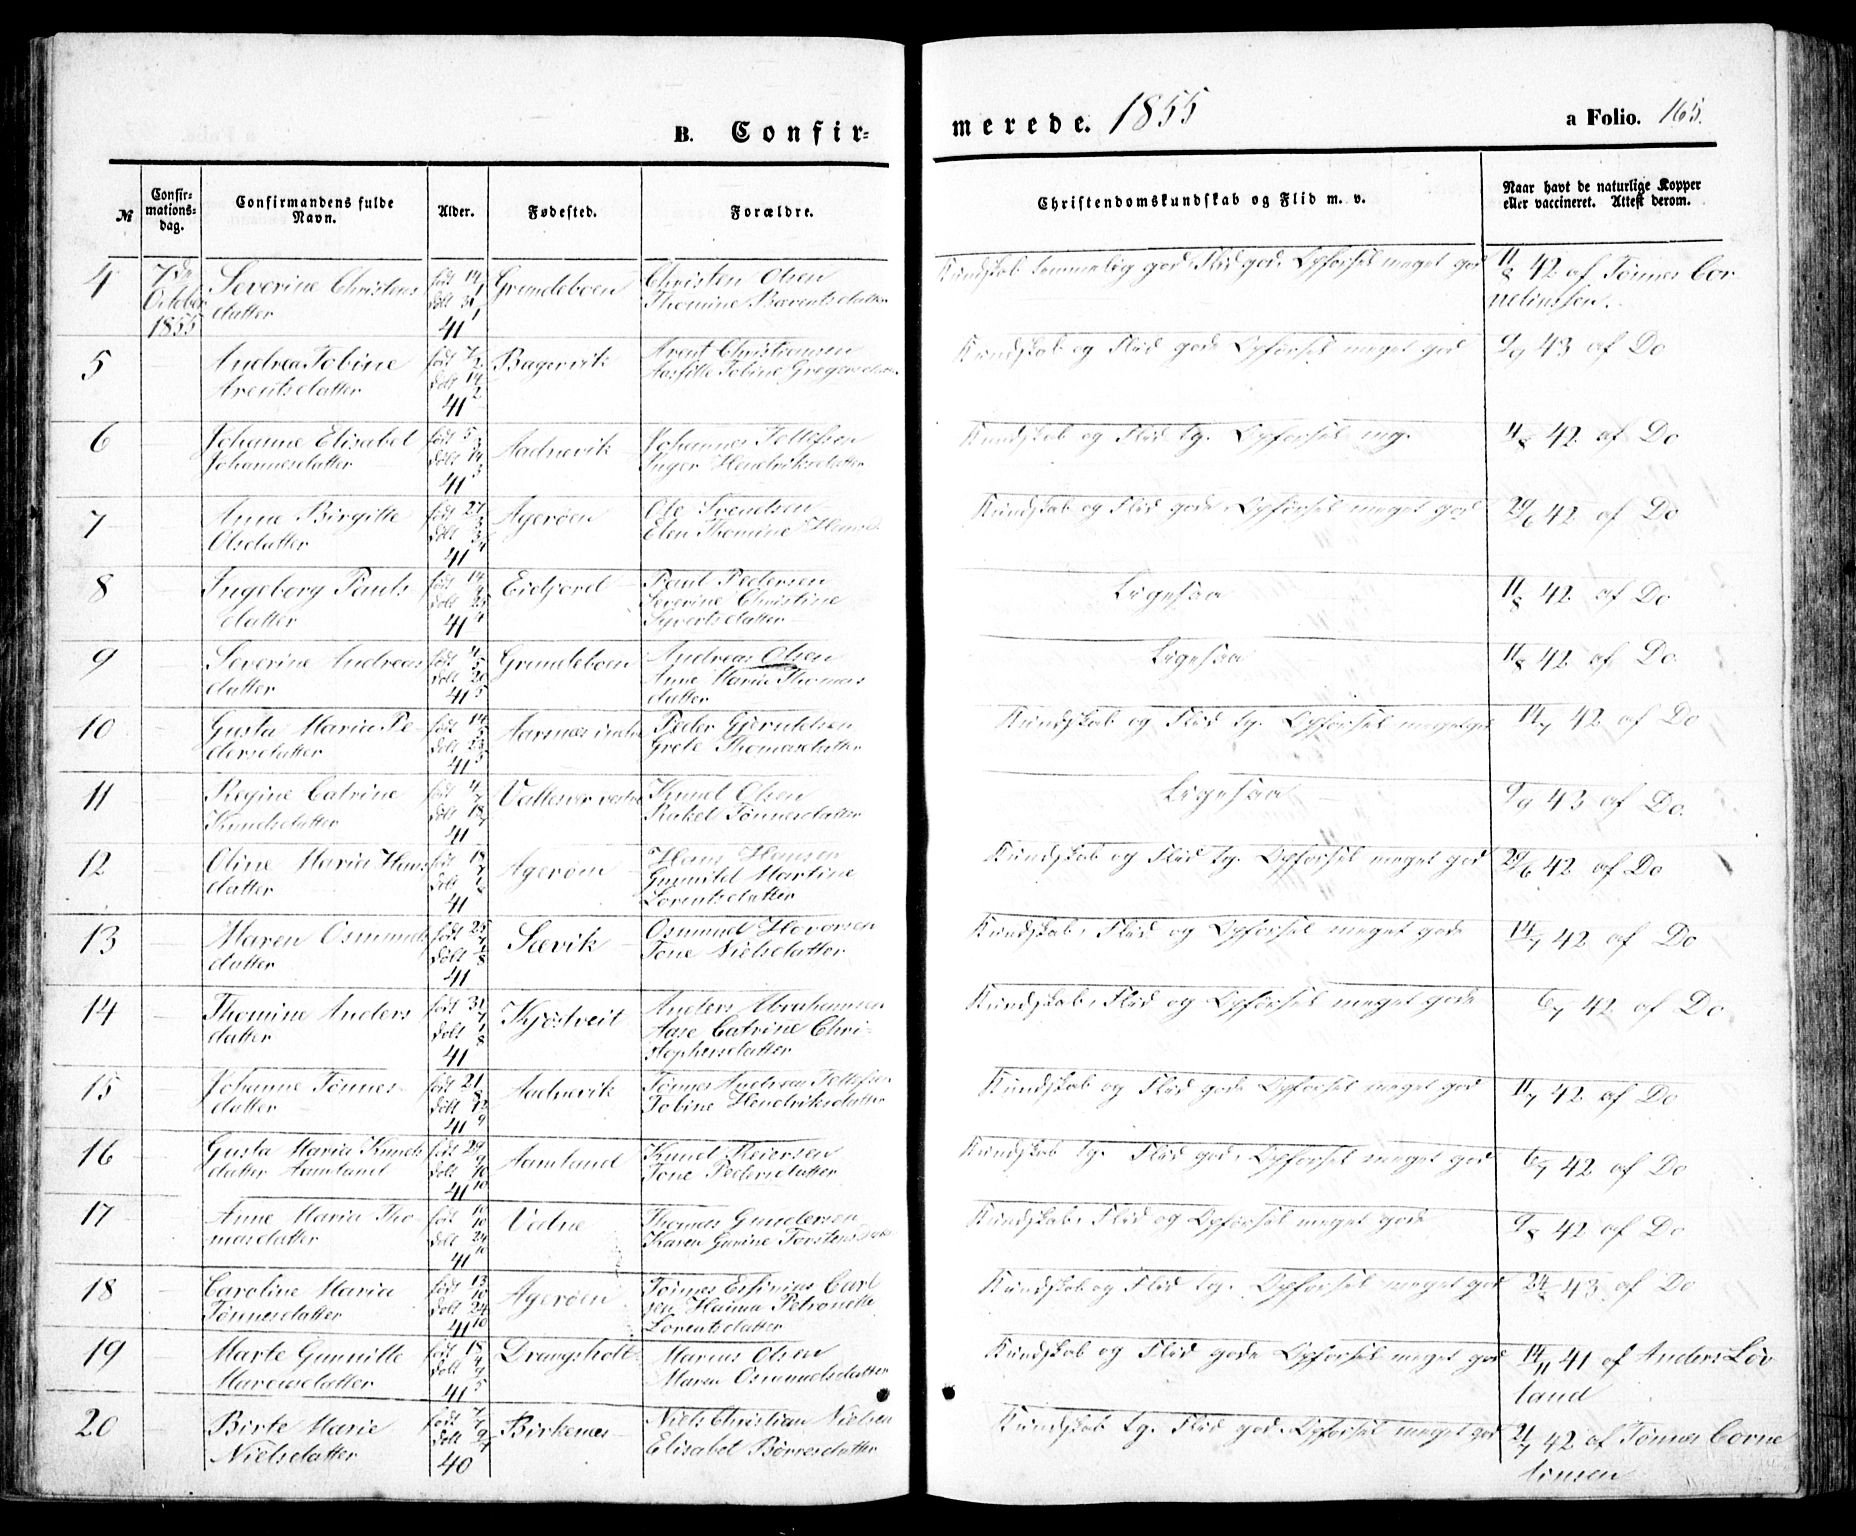 B. Confir-
merede. 1855
a Folio. 165.
№
Confir-
mations-
dag.
Confirmandens fulde
Navn.
Alder.
Fødested.
Forældre.
Christendomskundskab og Flid m. v.
Naar havt de naturlige Kopper
eller vaccineret. Attest derom.
4 7de Severine Christens født 14/1 Grundeboen Christen Olsen Kundskab temmelig god Flid god. Opførsel meget god 11/8 42 af Tønnes Cor
October datter døbt 31/1 Thomine Bærentsdatter neliussen.
1855 41
5 Andrea Tobine født 7/2 Bagervik Arent Christensen Kundskab og Flid gode Opførsel meget god 9/9 43 af Do
Arentsdatter døbt 14/2 Tobine
41
6 Johanne Elisabet født 5/3 Aadnevik Johannes Tellefsen Kundskab og Flid tg. Opførsel mg. 11/8 42 af Do
Johannesdatter døbt 14/3 Inger Hendriksdatter
41
7 Anne Birgitte født 27/3 Agerøen Ole Svendsen Kundskab og Flid gode. Opførsel meget god 29/6 42 af Do
Olsdatter døbt Elen Thomine Hans
41
8 Ingeborg Pauls født 14/4 Eidjord Paul Pedersen Ligesaa 11/8 42 af Do
datter døbt 25/4 Severine Christine
41 Syvertsdatter
9 Severine Andreas født Grundeboen Andreas Olsen Ligesaa 11/8 42 af Do
datter døbt 20/5 Anne Maria Thomas
41 datter
10 Gusta Maria Pe- født 14/5 Aarnes indre Peder Gjeruldsen Kundskab og Flid tg. Opførsel meget god 14/7 42 af Do
dersdatter døbt 23/5 Grete Thomasdatter
41
11 Regine Catrine født Vallesver vestre Knud Olsen Ligesaa 9/9 43 af Do.
Knudsdatter døbt 18/7 Rakel Tønnesdatter
41
12 Oline Maria Hans født 18/7 Agerøen Hans Hansen Kundskab og Flid tg. Opførsel meget god 29/6 42 af Do
datter døbt Gunnild Martine
41 Lorentsdatter
13 Maren Osmunds født 25/7 Sævik Osmund Hovorsen Kundskab, Flid og Opførsel meget gode 14/7 42 af Do
datter døbt Tone Nielsdatter
41
14 Thomine Anders født 31/7 Kjøstveit Anders Abrahamsen Kundskab, Flid og Opførsel meget gode 6/7 42 af Do
datter døbt 1/8 Aase Catrine Chri-
41 stophersdatter
15 Johanne Tønnes- født 21/8 Aadnevik Tønnes Andreas Tellefsen Kundskab og Flid gode Opførsel meget god 11/7 42 af Do
datter døbt 12/9 Tobine Hendriksdatter
41
16 Gusta Maria Knuds født 29/9 Aamland Knud Reiersen Kundskab tg. Flid god. Opførsel meget god 6/7 42 af Do
datter Aamland døbt 10/10 Tone Pedersdatter
41
17 Anne Maria Tho født 10/10 Vadne Thomas Gundersen Kundskab, Flid og Opførsel meget gode 9/8 42 af Do
masdatter døbt 24/10 Karen Gurine
41
18 Caroline Maria født 13/10 Agerøen Tønnes Carl Kundskab og Flid tg. Opførsel meget god 43 af Do
Tønnesdatter døbt 24/10 sen Petronelle
41 Lorentsdatter
19 Marte Gunnille født 18/4 Drangsholt Marius Olsen Kundskab og Flid gode Opførsel meget god 14/11 41 af Anders Løv
Mariusdatter døbt 9/5 Maren Osmundsdatter land
41
20 Birte Marie født Birkenes Niels Christian Nielsen Kundskab tg. Flid god. Opførsel meget god 21/7 42 af Tønnes Corne
Nielsdatter døbt Elisabet Børresdatter liusen
40